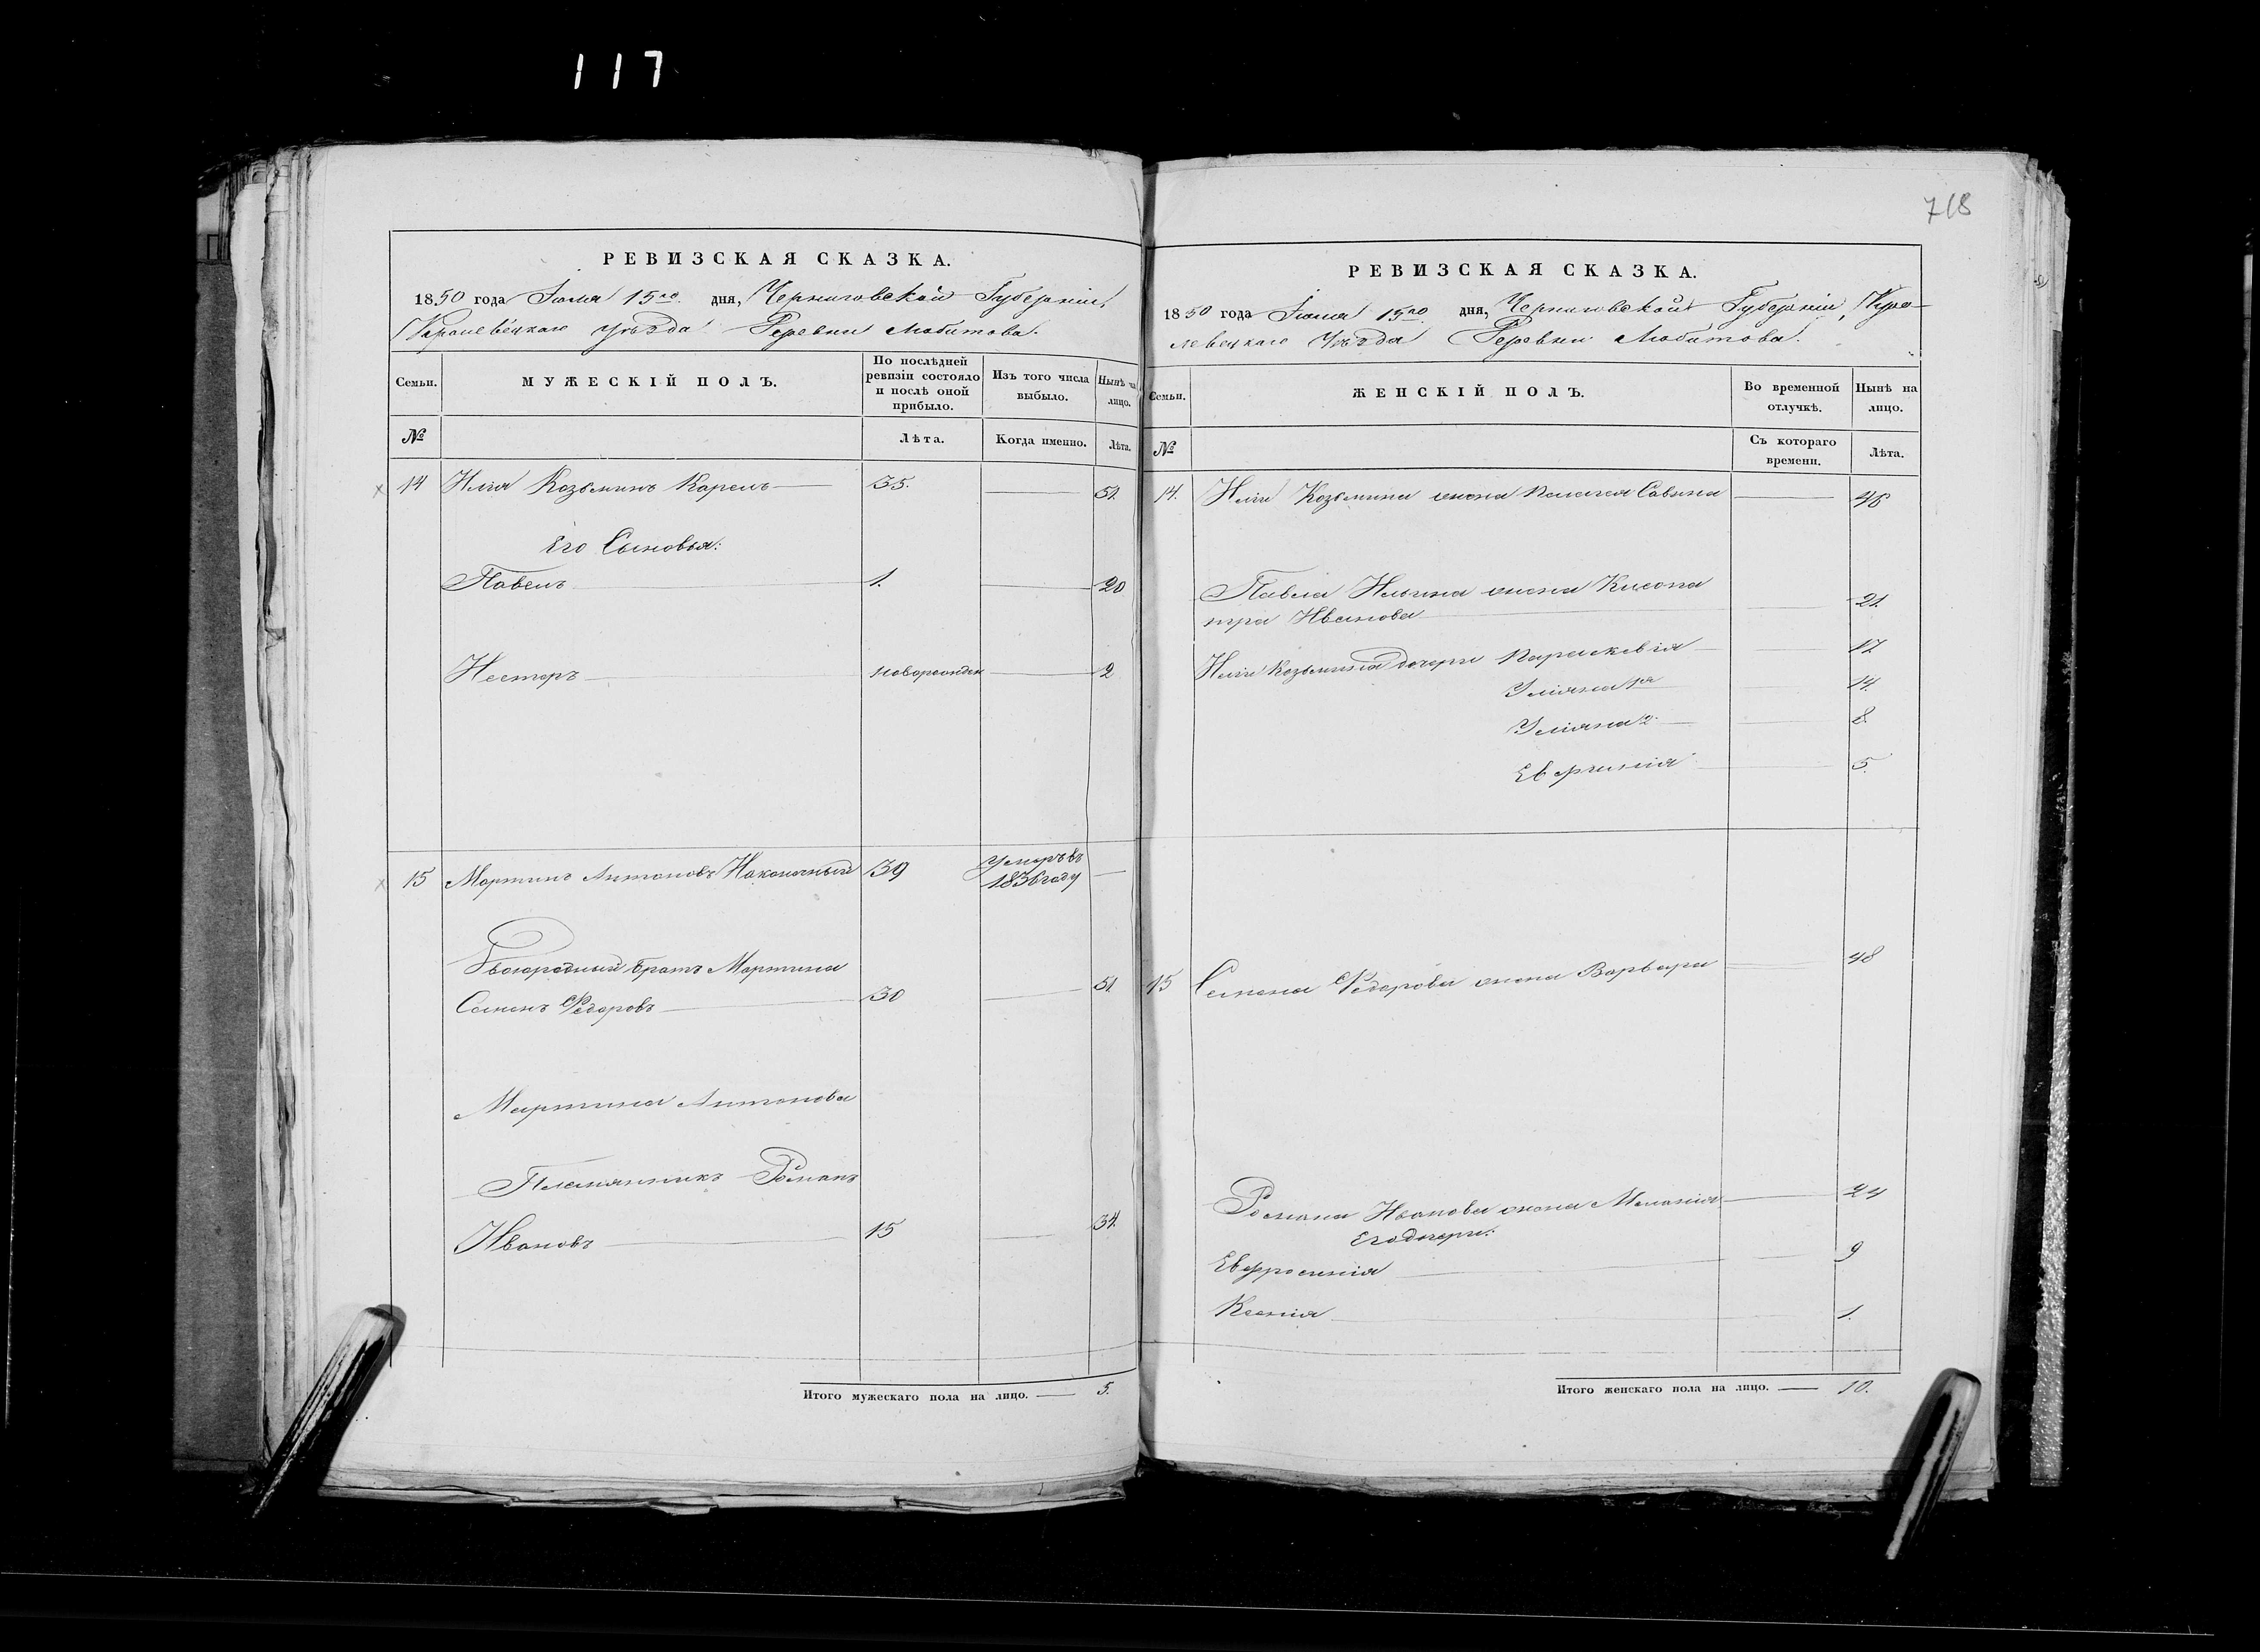 117
718
РЕВИЗСКАЯ СКАЗКА.
1850 года Іюля 15го дня, Черниговской Губерніи,
Каролевецкаго Уѣзда Деревни
Семьи. МУЖЕСКІЙ ПОЛЪ. По послѣдней ревизіи состояло и послѣ оной прибыло. Изъ того числа выбыло. Нынѣ на лицо.
№ Лѣта. Когда именно. Лѣта.
14 Илія Козьминъ Карелъ 35. 51.
Его Сыновья:
Павелъ 1. 20
Несторъ новорожден 2
15 Мартинъ Антоновъ Наконечный 39 Умеръ въ 1836 году
Двоюродный братъ Мартина
Семенъ Федоровъ 30 51.
Мартина Антонова
Племянникъ Романъ
Ивановъ 15 34.
Итого мужескаго пола на лицо. 5.
РЕВИЗСКАЯ СКАЗКА.
1850 года Іюля 15го дня, Черниговской Губерніи, Кро-
левецкаго Уѣзда Деревни
Семьи. ЖЕНСКІЙ ПОЛЪ. Во временной отлучкѣ. Нынѣ на лицо.
№ Съ котораго времени. Лѣта.
14. Иліи Козьмина жена Пелагея Савина 48
Павла Ильина жена Клеопа
тра Иванова 21.
Иліи Козьмина дочери Параскевія 17
Уліяна 1я 14.
Уліяна 2. 8.
Евгинія 5.
15 Семена Федорова жена Варвара 48
Романа Иванова жена Меланія 24
Его дочери:
Евфросинія 9
Ксенія 1.
Итого женскаго пола на лицо. 10.